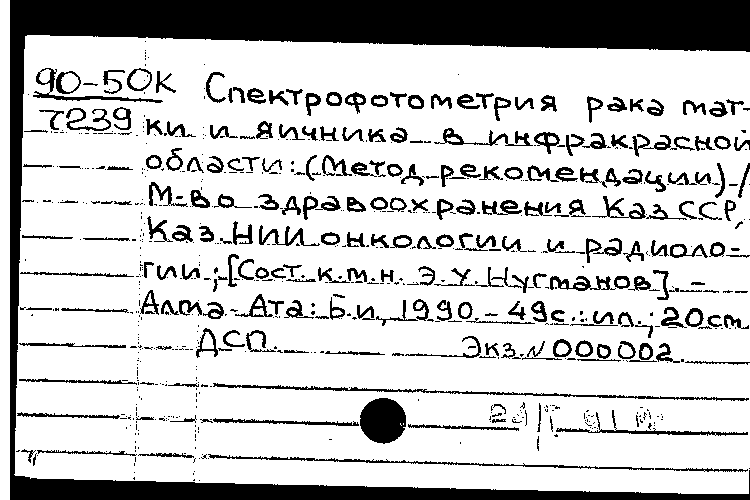 90-50К Спектрофотометрия рака мат-
7239 ки и яичника в инфракрасной
области: (Метод. рекомендации) /
М-во здравоохранения Каз ССР,
Каз. НИИ онкологии и радиоло-
гии; [Сост. к.м.н. Э.У. Нугманов]. -
Алма-Ата: Б.и., 1990. - 49с.: ил.; 20см.
ДСП. Экз. N 000002.